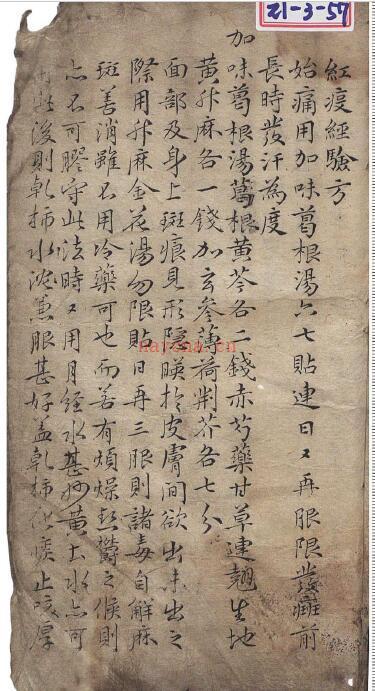 21-3-57
紅疫經驗方
始痛用加味葛根湯六七貼連日〻再服限發癍前
長時發汗為度
加味葛根湯葛根黃芩各二錢赤芍藥甘草連翹生地
黃升麻各一錢加玄參薄荷荊芥各七分
面部及身上斑痕見形隱暎於皮膚間欲出未出之
際用升麻金花湯勿限貼日再三服則諸毒自解麻
斑善消雖不用冷藥可也而善有煩燥𤍠鬱之候則
亦不可膠守此法時〻用月經水甚妙黃土水亦可
此後則乾柿水沈兼服甚好盖乾柿化痰止咳厚
hayona.cn